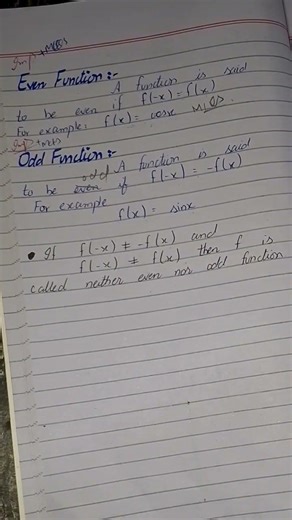 Imp +MCQs
Even Function:-
A function is said
to be even if f(-x) = f(x)
For example: f(x) = cosx
Imp +MCQs
Odd Function:-
A function is said
to be even odd if f(-x) = -f(x)
For example
f(x) = sinx
• If f(-x) ≠ -f(x) and
f(-x) ≠ f(x) then f is
called neither even nor odd function